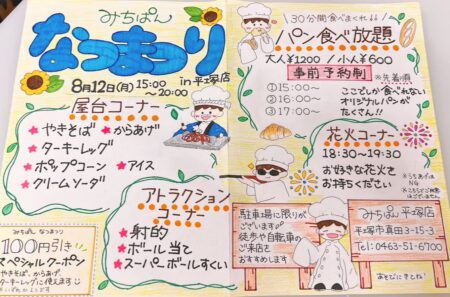 みちぱん
なつまつり
8月12日(月) 15:00~20:00
in 平塚店
屋台コーナー
★やきそば ★からあげ
★ターキーレッグ
★ポップコーン ★アイス
★クリームソーダ
アトラクションコーナー
★射的
★ボール当て
★スーパーボールすくい
みちぱん なつまつり
100円引き
スペシャルクーポン
やきそば、からあげ、
ターキーレッグに使えます
30分間食べまくれ!!
パン食べ放題
大人¥1200 / 小人¥600
事前予約制
※先着順
①15:00~
②16:00~
③17:00~
ここでしか食べれない
オリジナルパンが
たくさん!!
花火コーナー
18:30~19:30
お好きな花火を
お持ちください
NG
駐車場に限りが
ございます
徒歩や自転車の
ご来店を
おすすめします
みちぱん 平塚店
平塚市真田3-15-3
Tel:0463-51-6700
あそびにきてね!